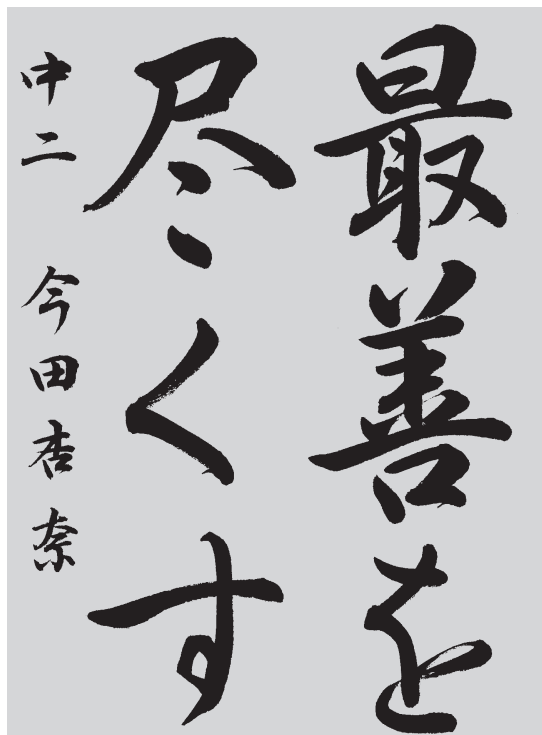 最善を
尽くす
中二 今田杏奈